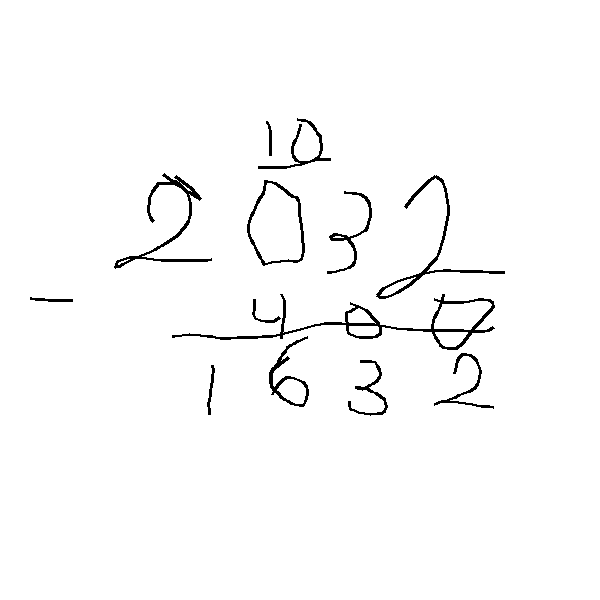 10
2032
- 400
1632